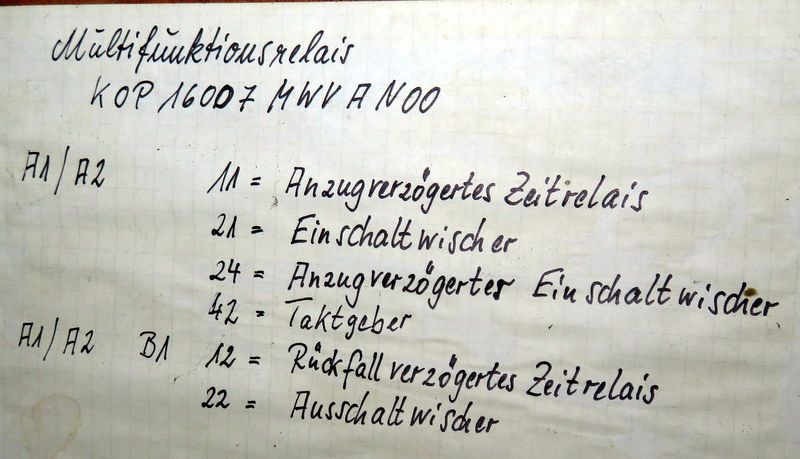 Multifunktionsrelais
KOP 16007 MWV A N00
A1/A2 11 = Anzugverzögertes Zeitrelais
21 = Einschaltwischer
24 = Anzugverzögerter Einschaltwischer
42 = Taktgeber
A1/A2 B1 12 = Rückfallverzögertes Zeitrelais
22 = Ausschaltwischer